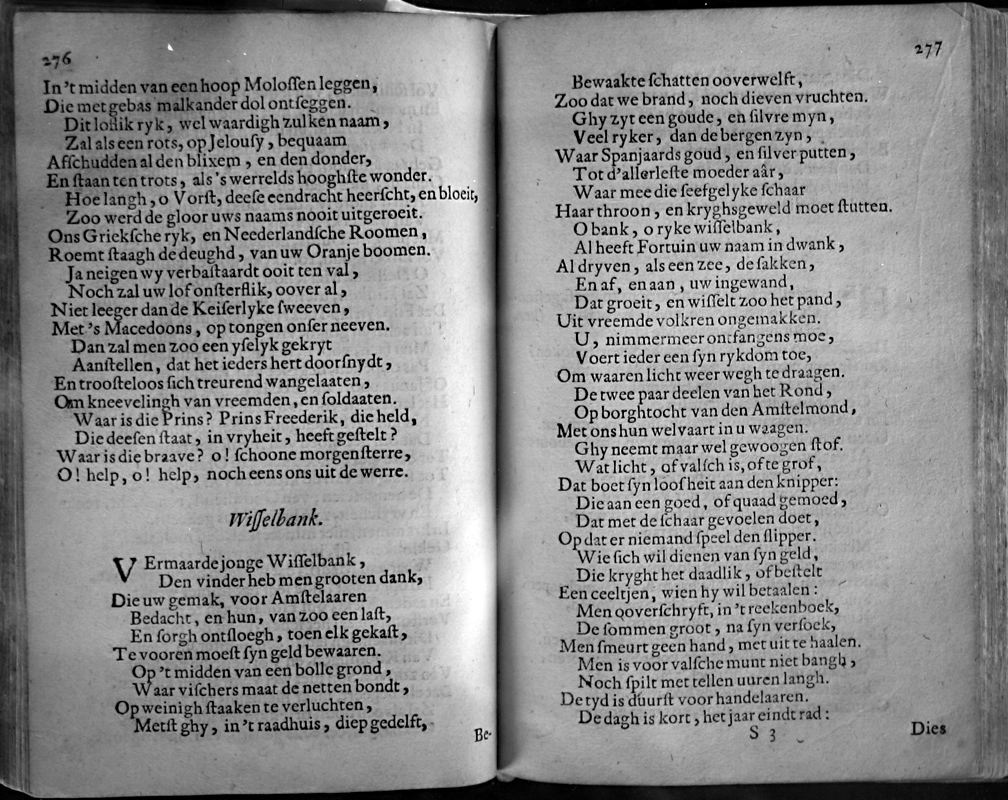 276
In 't midden van een hoop Moloſſen leggen,
Die met gebas malkander dol ontſeggen.
Dit loſlik ryk, wel waardigh zulken naam,
Zal als een rots, op Jelouſy, bequaam
Afſchudden al den blixem, en den donder,
En ſtaan ten trots, als 's werrelds hooghſte wonder.
Hoe langh, o Vorſt, deeſe eendracht heerſcht, en bloeit,
Zoo werd de gloor uws naams nooit uitgeroeit.
Ons Griekſche ryk, en Neederlandſche Roomen,
Roemt ſtaagh de deughd, van uw Oranje boomen.
Ja neigen wy verbaſtaardt ooit ten val,
Noch zal uw lof onſterflik, oover al,
Niet leeger dan de Keiſerlyke ſweeven,
Met 's Macedoons, op tongen onſer neeven.
Dan zal men zoo een yſelyk gekryt
Aanſtellen, dat het ieders hert doorſnydt,
En trooſteloos ſich treurend wangelaaten,
Om kneevelingh van vreemden, en ſoldaaten.
Waar is die Prins? Prins Freederik, die held,
Die deeſen ſtaat, in vryheit, heeft geſtelt?
Waar is die braave? o! ſchoone morgenſterre,
O! help, o! help, noch eens ons uit de werre.
Wiſſelbank.
VErmaarde jonge Wiſſelbank,
Den vinder heb men grooten dank,
Die uw gemak, voor Amſtelaaren
Bedacht, en hun, van zoo een laſt,
En ſorgh ontſloegh, toen elk gekaſt,
Te vooren moeſt ſyn geld bewaaren.
Op 't midden van een bolle grond,
Waar viſchers maat de netten bondt,
Op weinigh ſtaaken te verluchten,
Metſt ghy, in 't raadhuis, diep gedelft,
Be-
277
Bewaakte ſchatten ooverwelft,
Zoo dat we brand, noch dieven vruchten.
Ghy zyt een goude, en ſilvre myn,
Veel ryker, dan de bergen zyn,
Waar Spanjaards goud, en ſilver putten,
Tot d'allerleſte moeder aâr,
Waar mee die ſeefgelyke ſchaar
Haar throon, en kryghsgeweld moet ſtutten.
O bank, o ryke wiſſelbank,
Al heeft Fortuin uw naam in dwank,
Al dryven, als een zee, de ſakken,
En af, en aan, uw ingewand,
Dat groeit, en wiſſelt zoo het pand,
Uit vreemde volkren ongemakken.
U, nimmermeer ontfangens moe,
Voert ieder een ſyn rykdom toe,
Om waaren licht weer wegh te draagen.
De twee paar deelen van het Rond,
Op borghtocht van den Amſtelmond,
Met ons hun welvaart in u waagen.
Ghy neemt maar wel gewoogen ſtof.
Wat licht, of valſch is, of te grof,
Dat boet ſyn loofheit aan den knipper:
Die aan een goed, of quaad gemoed,
Dat met de ſchaar gevoelen doet,
Op dat er niemand ſpeel den ſlipper.
Wie ſich wil dienen van ſyn geld,
Die kryght het daadlik, of beſtelt
Een ceeltjen, wien hy wil betaalen:
Men ooverſchryft, in 't reekenboek,
De ſommen groot, na ſyn verſoek,
Men ſmeurt geen hand, met uit te haalen.
Men is voor valſche munt niet bangh,
Noch ſpilt met tellen uuren langh.
De tyd is duurſt voor handelaaren.
De dagh is kort, het jaar eindt rad:
S 3
Dies